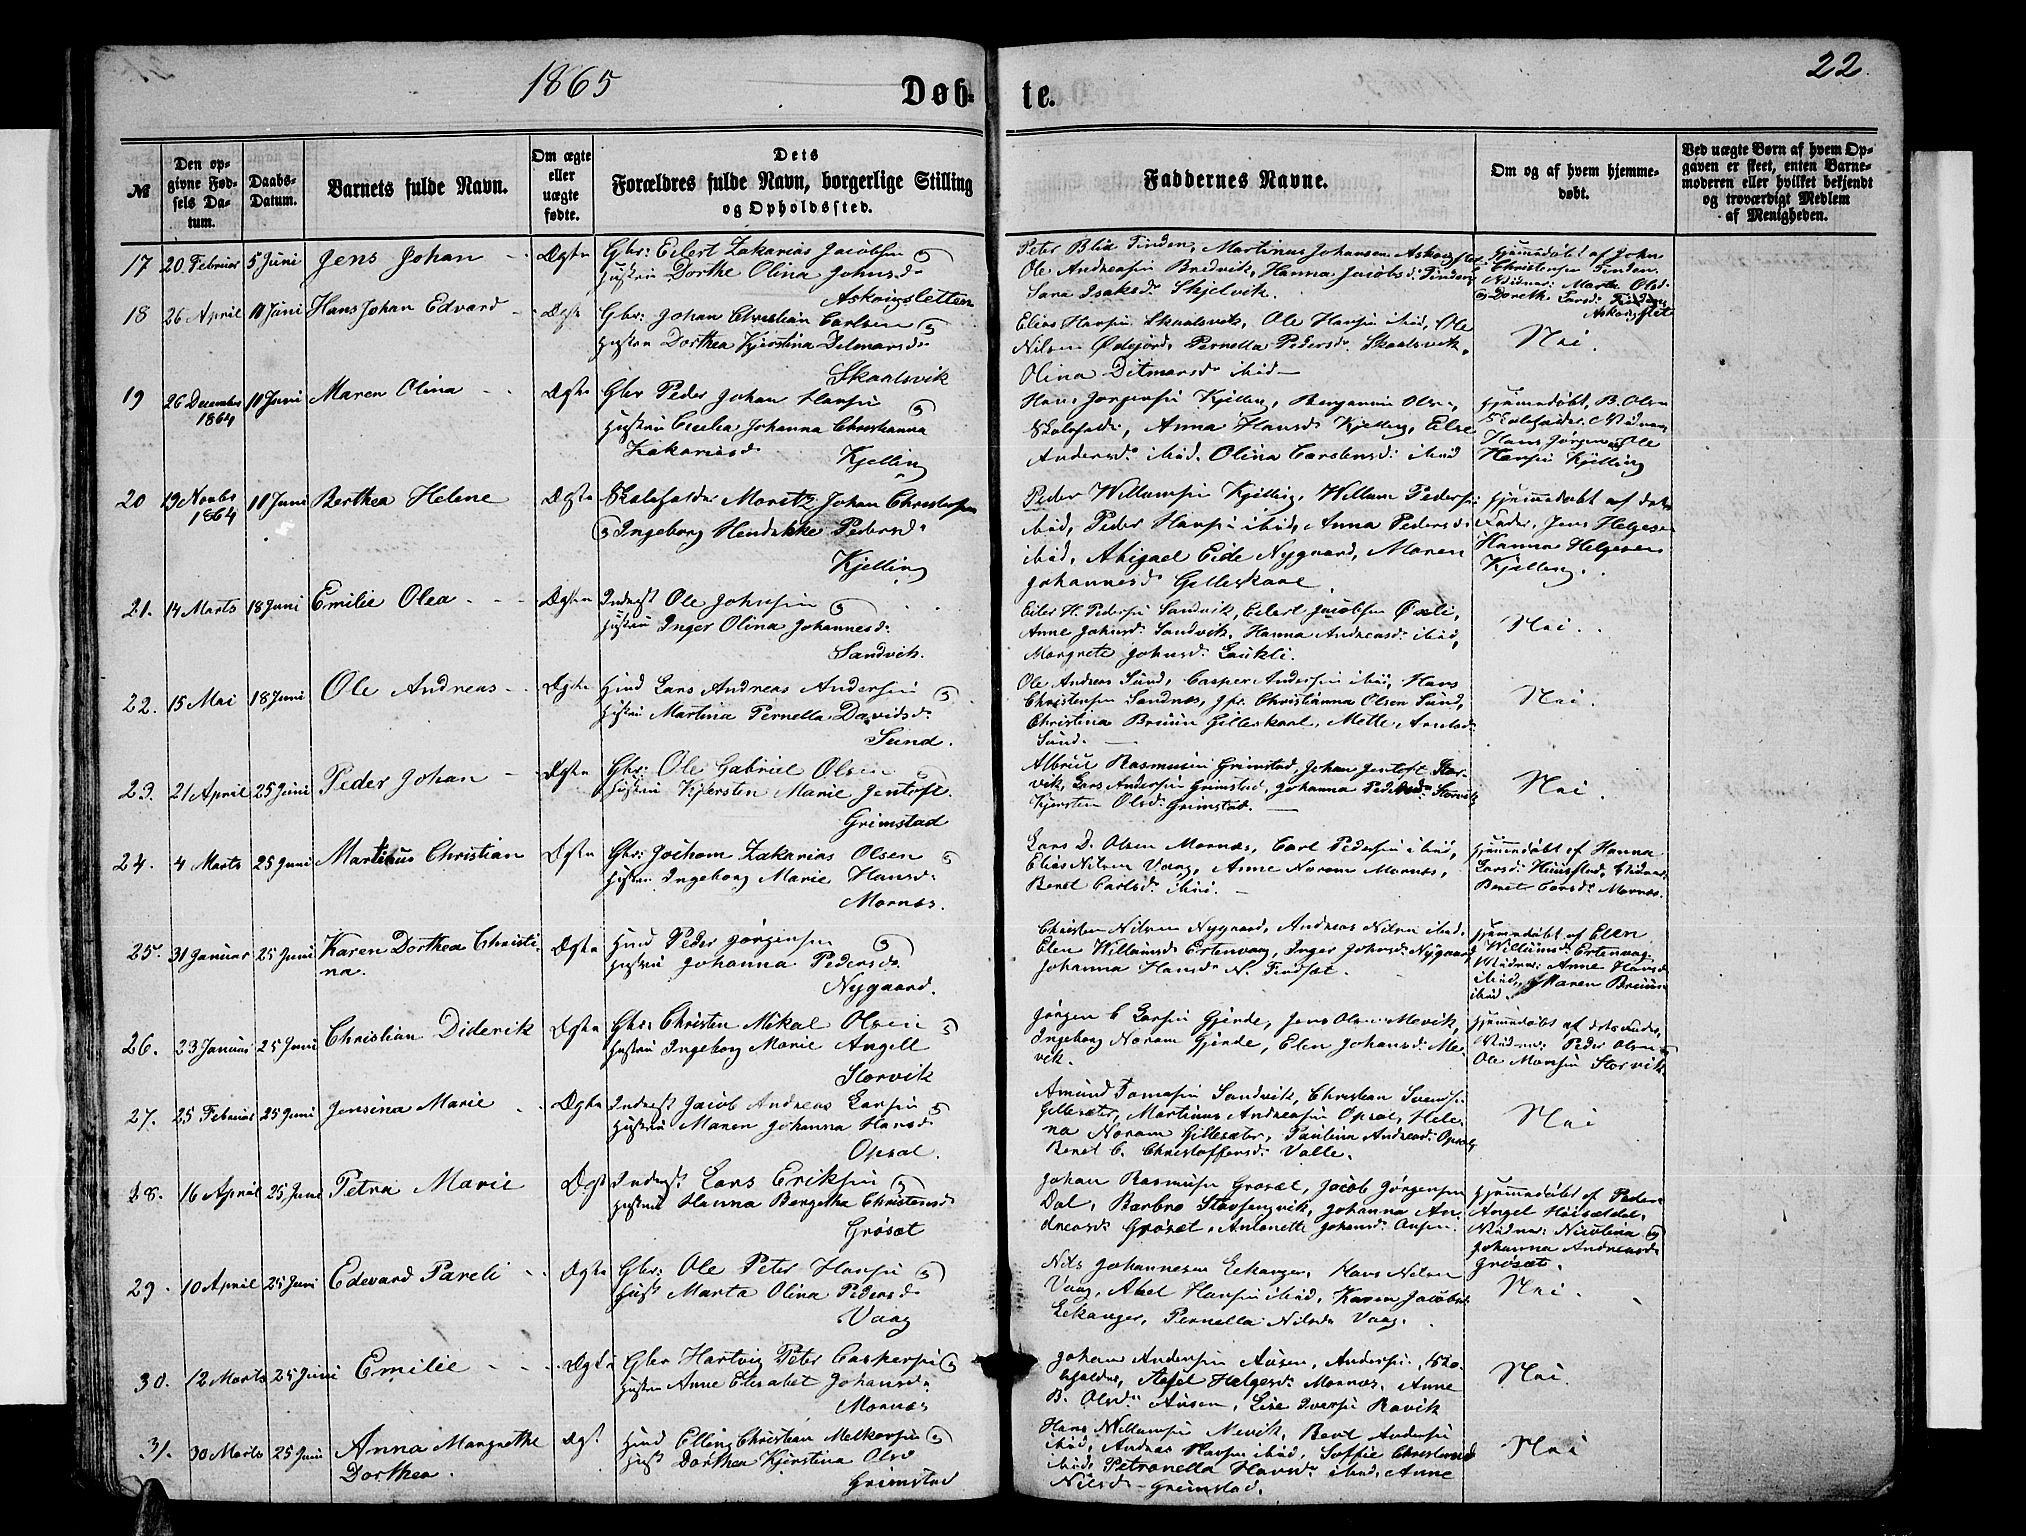 1865
22.
Døb-
te.
№
Den op-
givne Fød-
sels Da-
tum.
Daabs-
Datum.
Barnets fulde Navn.
Om ægte
eller
uægte
fødte.
Dets
Forældres fulde Navn, borgerlige Stilling
og Opholdssted.
Faddernes Navne.
Om og af hvem hjemme-
døbt.
Ved uægte Børn af hvem Op-
gaven er skeet, enten Barne-
moderen eller hvilket bekjendt
og troværdigt Medlem
af Menigheden.
17 20. Februar 5 Juni Jens Johan Ægte Gbr: Eilert Zakarias Jacobsen
Hustru Dorthe Olina Johnsd:
Askougsletten
Peter Blix Finden, Martinus Johansen
Ole Andreasen Bredvik, Hanna Jacobsd: Finden
Sara Isaksd: Skjelvik.
Hjemmedøbt af John
Christensen Finden.
18 26 April 11 Juni Hans Johan Edvard Ægte Gbr: Johan Christian Carlsen
Hustru Dorthea Kjerstina Ditmarsd:
Skaalsvik
Elias Hansen Skaalsvik, Ole Hansen ibid, Ole
Nilsen Ødegjord, Pernella Pedersd: Skaalsvik.
Olina Ditmarsd: ibid
Nei.
19 26 December 11 Juni Maren Olina Ægte Gbr Peder Johan Hansen
1864
Hustru Cecilia Johanna Christianna
Zakariasd:
Kjelling
Hans Jørgensen Kjelling, Benjamin Olsen,
Skolehold:, Anna Hansd: Kjelling, Else
Andersd: ibid. Olina Carstensd: ibid
Hjemmedøbt, B. Olsen
Hans Jørgensen, Ole
Hansen Kjelling
20 19 Novbr 11 Juni Berthea Helene Ægte Skoleholder Moritz Johan Christensen
1864
Ingeborg Hendrikke Pedersd:
Kjelling
Peder Willumsen Kjelling, Willum Pedersen
ibid, Peder Hansen ibid, Anna Pedersd:
ibid, Abigael Eide Nygaard, Maren
Johannesd: Gilleskaal
Hjemmedøbt af dets
Fader, Jens Helgesen
Hanna Helgesen
Kjelling.
21. 14 Marts 18 Juni Emilie Olea Ægte Inderst Ole Johnsen
Hustru Inger Olina Johannesd:
Sandvik.
Eiler H. Pedersen Sandvik, Eilert Jacobsen
Anne Johnsd: Sandvik, Hanna Andreasd: ibid,
Margrete Johnsd: Laukli.
Nei.
22. 15 Mai 18 Juni Ole Andreas Ægte Huusmd Lars Andreas Andersen
Hustru Martina Pernella Davidsd:
Sund.
Ole Andreas Sund, Casper Andersen ibid, Hans
Christensen Sandnes, Christianna Olsen Sund,
Christina Bruun Gilleskaal, Mette
Sund.
Nei.
23. 21 April 25 Juni Peder Johan Ægte Gbr: Ole Gabriel Olsen
Hustru Kjersten Marie Jentoft
Grimstad
Albrict Rasmusen Grimstad, Johan Jentoft Stor-
vik, Lars Andersen Grimstad, Johanna Storvik
Kjersten Olsd: Grimstad.
Nei.
24. 4 Marts 25 Juni Martinus Christian Ægte Gbr: Jochom Zakarias Olsen
Hustru Ingeborg Marie Hansd:
Mornæs.
Lars D. Olsen Mornæs, Carl Pedersen ibid,
Elias Nilsen Vaag, Anne Norum Mornæs,
Beret Carlsd: ibid.
Hjemmedøbt af Hanna
Larsd: Hunstad,
Beret Carlsd: Mornæs.
25. 31 Januar 25 Juni Karen Dorthea Christi-
na.
Ægte Huusmd Peder Jørgensen
Hustru Johanna Pedersd:
Nygaard.
Christen Nilsen Nygaard, Andreas Nilsen ibid
Elen Willumsd: Ertenvaag, Inger Johnsd: Nygaard
Johanna Hansd: N. Finset.
Hjemmedøbt af Elen
Willumsd: Ertenvaag
Anne Hansd
ibid, Maren Bruun
ibid.
26. 23 Januar 25 Juni Christian Diderik Ægte Gbr: Christen Mikal Olsen
Hustru Ingeborg Marie Angell
Storvik
Jørgen C Larsen Gjerde, Jens Olsen Mevik,
Ingeborg Norum Gjerde, Elen Johansd: Me-
vik.
Hjemmedøbt af dets Fader,
Peder Olsen
Ole Monsen Storvik.
27. 25 Februar 25 Juni Jensina Marie Ægte Inderst Jacob Andreas Larsen
Hustru Maren Johanna Hansd:
Opsal.
Amund Tomasen Sandvik, Christian Svendsen
Gillesæter, Martinus Andreasen Opsal, Hele-
na Norum Gillesæter, Paulina Andreasd: Opsal,
Beret C. Christoffersd: Valle.
Nei
28. 16 April 25 Juni Petra Marie Ægte Inderst Lars Eriksen
Hustru Hanna Bergetha Christensd:
Grøsæt
Johan Rasmusen Grøsæt, Jacob Jørgensen
Dal, Barbro Johanna An-
dreasd: Grøsæt, Antonette Johansd:
Hjemmedøbt af Peder
Angel
Nicolina
Johanna Andreasd:
Grøsæt.
29. 10 April 25 Juni Edevard Pareli Ægte Gbr: Ole Peter Hansen
Hust Marta Olina Pedersd:
Vaag
Nils Johannesen Eekanger, Hans Nilsen
Vaag, Abel Hansen ibid, Karen Jacobsd:
Eekanger, Pernella Nilsd: Vaag.
Nei.
30. 12 Marts 25 Juni Emilie Ægte Gbr Hartvig Peter Caspersen
Hustru Anne Elisabet Johansd:
Mornæs
Johan Andersen Ausen, Andersen Sko-
leholder, Helgesd: Mornæs, Anne
B. Olsd: Ausen, Else Iversen Ravik
Nei.
31. 30 Marts 25 Juni Anna Margrethe
Dorthea.
Ægt. Huusmd Elling Christian Melkersen
Hust Dorthea Kjerstina Olsd
Grimstad
Hans Willumsen Mevik, Bent Andersen
ibid, Andreas Hansen ibid, Soffie Christensd
ibid, Petronella Hansd: ibid, Anne
Nilsd: Grimstad.
Nei